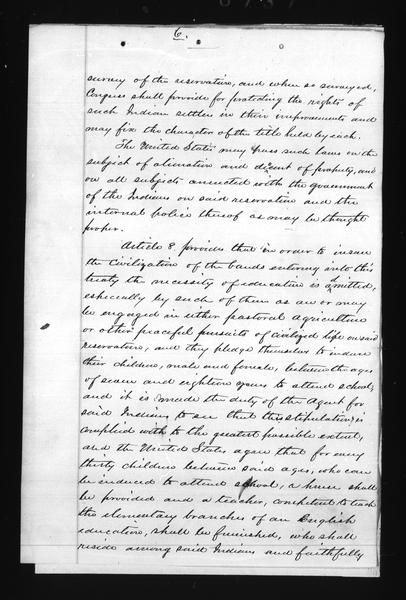 6.
survey of the reservation, and when so surveyed,
Congress shall provide for protecting the rights of
such Indian settlers in their improvements and
may fix the character of the title held by each.
The United States may pass such laws on the
subject of alienation and descent of property, and
on all subjects connected with the government
of the Indians on said reservation and the
internal police thereof as may be thought
proper.
Article 8. provides that in order to insure
the civilization of the bands entering into this
treaty the necessity of education is admitted,
especially by such of them as are or may
be engaged in either pastoral agriculture
or other peaceful pursuits of civilized life on said
reservation, and they pledge themselves to induce
their children, male and female, between the ages
of seven and eighteen years to attend school;
and it is made the duty of the Agent for
said Indians to see that this stipulation is
complied with to the greatest possible extent,
and the United States agree that for every
thirty children between said ages, who can
be induced to attend school, a house shall
be provided and a teacher, competent to teach
the elementary branches of an English
education, shall be furnished, who shall
reside among said Indians and faithfully